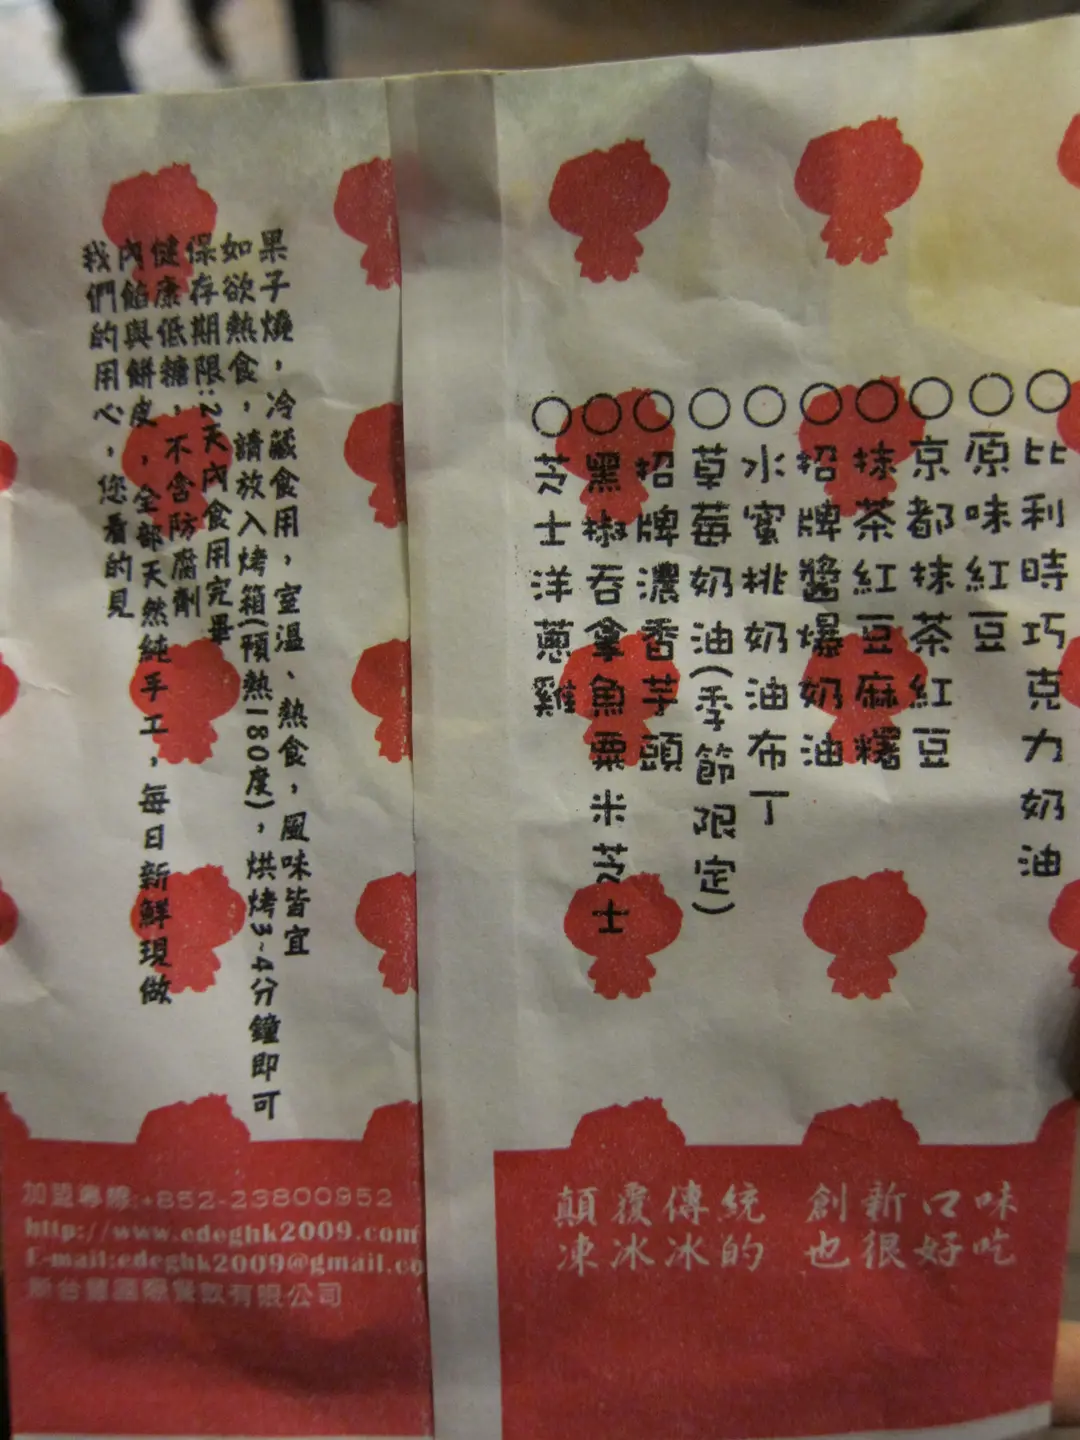 果子燒，冷藏食用，室溫、熱食，風味皆宜
如欲熱食，請放入烤箱(預熱180度)，烘烤3~4分鐘即可
保存期限：2天內食用完畢
健康低糖，不含防腐劑
內餡與餅皮，全部天然純手工，每日新鮮現做
我們的用心，您看的見
加盟專線:+852-23800952
http://www.edeghk2009.com
E-mail:edeghk2009@gmail.co
有限公司
○比利時巧克力奶油
○原味紅豆
○京都抹茶紅豆
○抹茶紅豆麻糬
○招牌醬爆奶油
○水蜜桃奶油布丁
○草莓奶油(季節限定)
○招牌濃香芋頭
○黑椒吞拿魚粟米芝士
○芝士洋蔥雞
顛覆傳統 創新口味
凍冰冰的 也很好吃